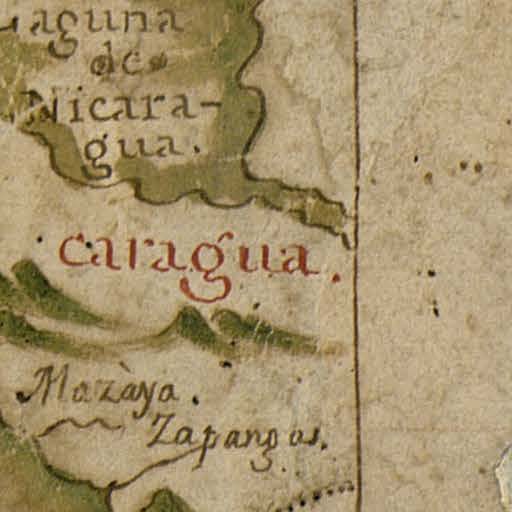 Laguna
de
Nicara-
gua.
caragua.
Mazàya.
Zapangas.